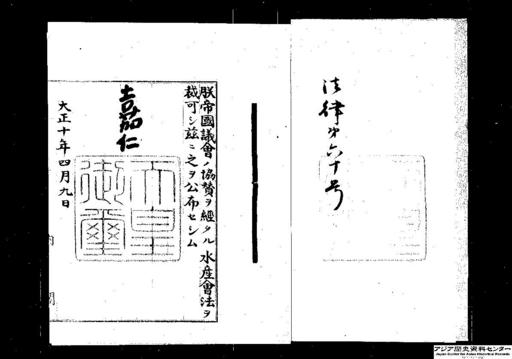 法律第六十号
朕帝國議會ノ協賛ヲ經タル水産會法ヲ
裁可シ茲ニ之ヲ公布セシム
嘉仁
天皇
御璽
大正十年四月九日
内閣
アジア歴史資料センター
Japan Center for Asian Historical Records